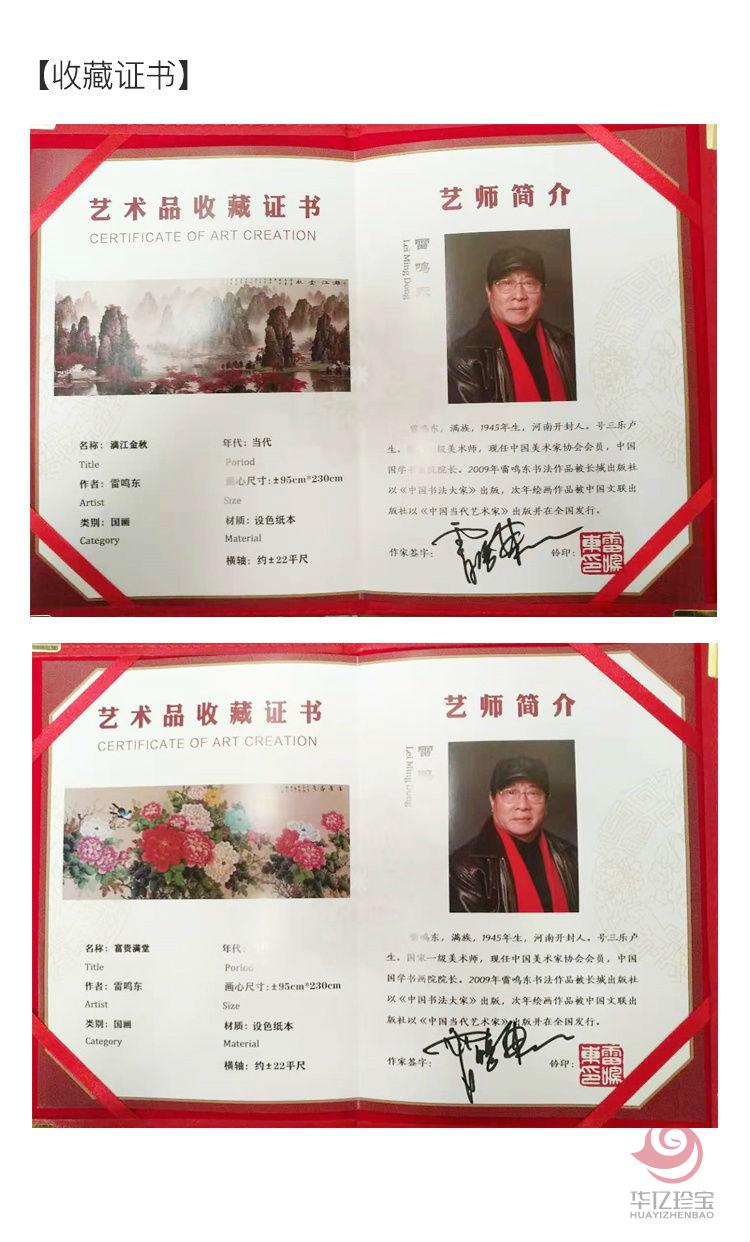 【收藏证书】
艺术品收藏证书
CERTIFICATE OF ART CREATION
漓江金秋
名称：漓江金秋
Title
作者：雷鸣东
Artist
类别：国画
Category
年代：当代
Poriod
画心尺寸：±95cm*230cm
Size
材质：设色纸本
Material
横轴：约±22平尺
艺师简介
雷鸣东
Lei Ming Dong
雷鸣东，满族，1945年生，河南开封人。号三乐卢
生。国家一级美术师，现任中国美术家协会会员，中国
国学书画院院长。2009年雷鸣东书法作品被长城出版社
以《中国书法大家》出版，次年绘画作品被中国文联出
版社以《中国当代艺术家》出版并在全国发行。
作家签字：
钤印：
艺术品收藏证书
CERTIFICATE OF ART CREATION
名称：富贵满堂
Title
作者：雷鸣东
Artist
类别：国画
Category
年代：
Poriod
画心尺寸：±95cm*230cm
Size
材质：设色纸本
Material
横轴：约±22平尺
艺师简介
雷鸣
Lei Ming Dong
雷鸣东，满族，1945年生，河南开封人。号三乐卢
生。国家一级美术师，现任中国美术家协会会员，中国
国学书画院院长。2009年雷鸣东书法作品被长城出版社
以《中国书法大家》出版，次年绘画作品被中国文联出
版社以《中国当代艺术家》出版并在全国发行。
作家签字：
钤印：
华亿珍宝
HUAYIZHENBAO